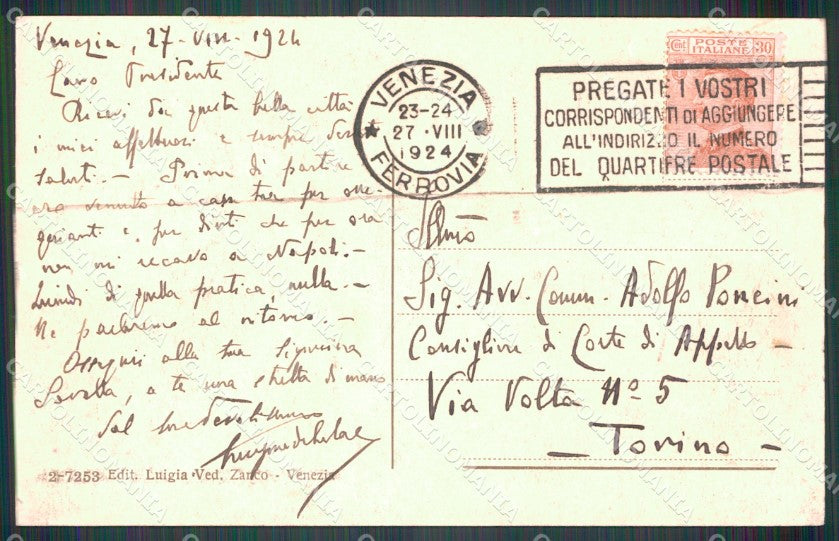 Venezia, 27-VIII-1924
Caro Presidente
Ricevi da questa bella città
i miei affettuosi e sempre
saluti. - Prima di partire
ero venuto a casa tua per
e, per dirti che per ora
non mi recavo a Napoli. -
Quindi di quella pratica, nulla. -
Ne parleremo al ritorno -
Ossequi alla tua Signorina
Sorella, a te una stretta di mano
dal tuo
2-7253 Edit. Luigia Ved. Zanco - Venezia
POSTE
ITALIANE
Cent. 30
VENEZIA
23-24
27·VIII
1924
FERROVIA
PREGATE I VOSTRI
CORRISPONDENTI DI AGGIUNGERE
ALL'INDIRIZZO IL NUMERO
DEL QUARTIERE POSTALE
Illmo
Sig. Avv. Comm. Adolfo Poncini
Consigliere di Corte di Appello -
Via Volta Nº 5
- Torino -
CARTOLINOMANIA